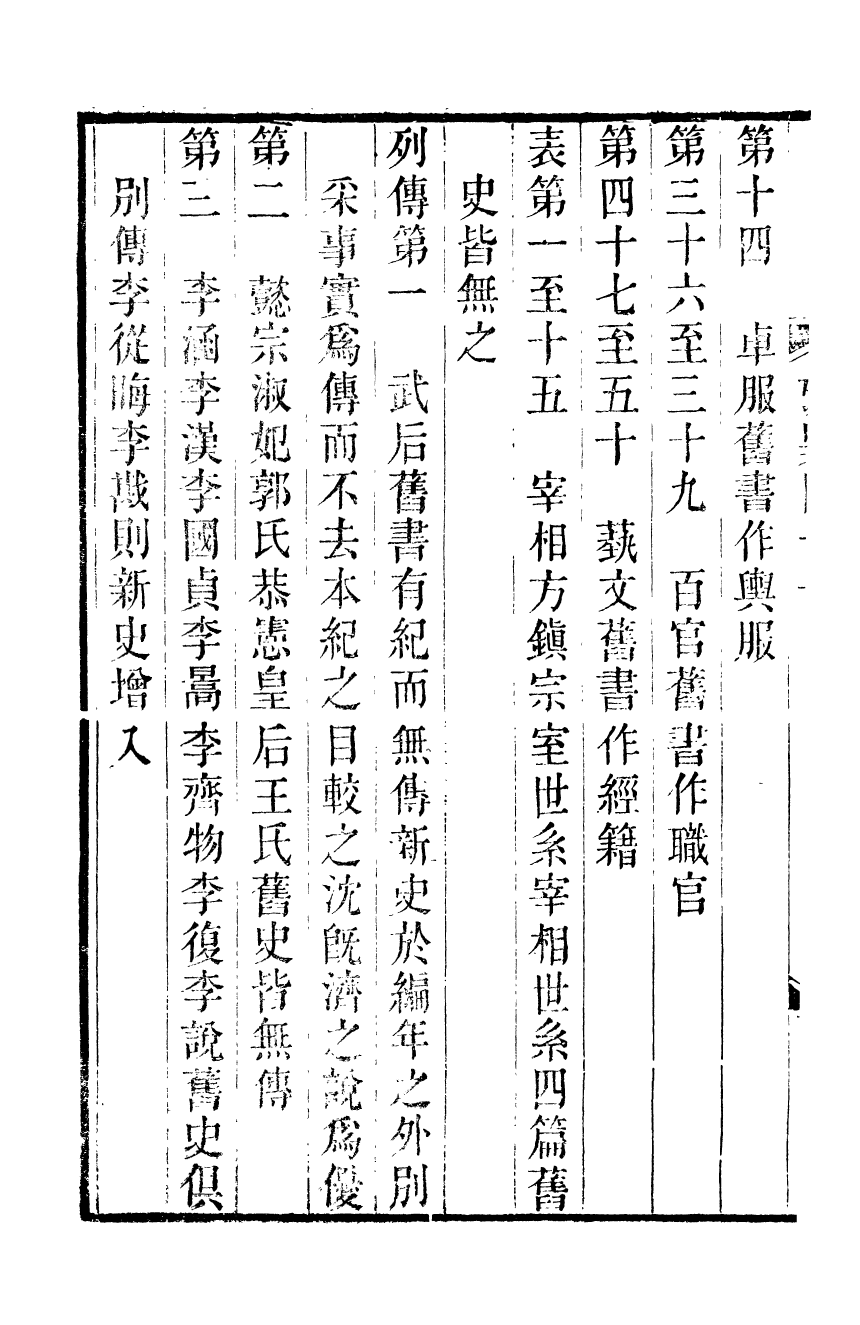 第十四　卓服舊書作輿服
第三十六至三十九　百官舊書作職官
第四十七至五十　藝文舊書作經籍
表第一至十五　宰相方鎭宗室世系宰相世系四篇舊
史皆無之
列傳第一　武后舊書有紀而無傳新史於編年之外別
采事實爲傳而不去本紀之目較之沈旣濟之說爲優
第二　懿宗淑妃郭氏恭憲皇后王氏舊史皆無傳
第三　李涵李漢李國貞李暠李齊物李復李說舊史俱
別傳李從晦李戡則新史增入